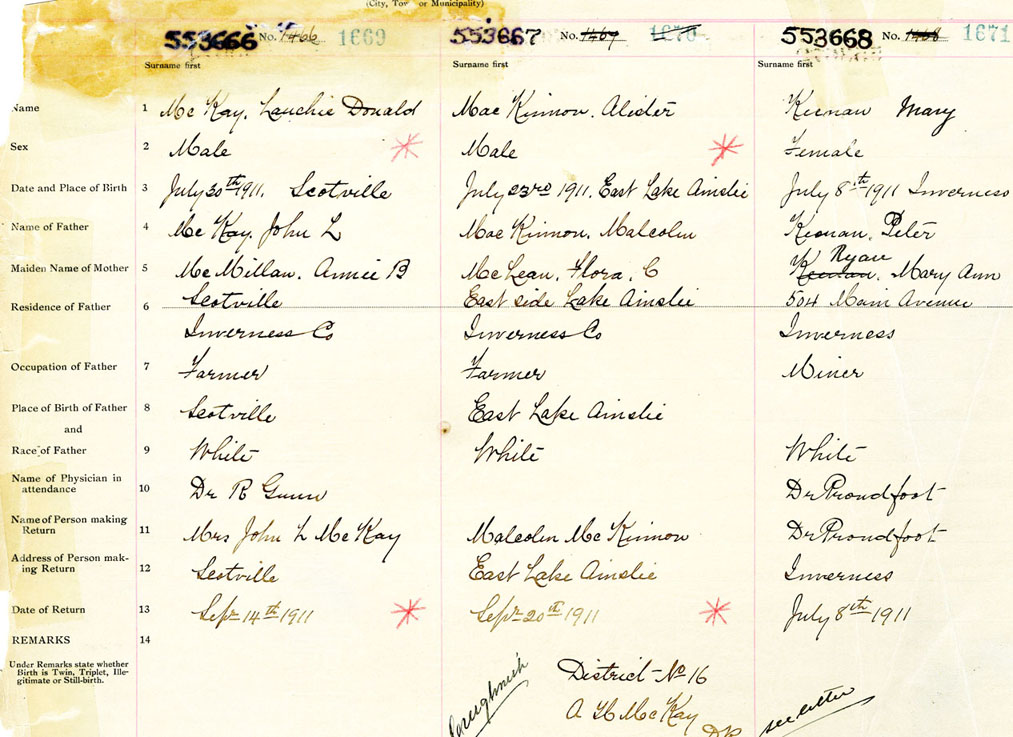 (City, Tow or Municipality)
553666 No. 1466 1669 553667 No. 1467 1670 553668 No. 1468 1671
Surname first Surname first Surname first
Name 1 Mc Kay, Lauchie Donald Mac Kinnon, Alister Keenan Mary
Sex 2 Male Male Female
Date and Place of Birth 3 July 30th 1911, Scotville July 23rd 1911, East Lake Ainslie July 8th 1911 Inverness
Name of Father 4 Mc Kay, John L Mac Kinnon, Malcolm Keenan, Peter
Ryan
Maiden Name of Mother 5 Mc Millan, Annie B Mc Lean, Flora, C Keenan, Mary Ann
Residence of Father 6 Scotville East side Lake Ainslie 504 Main Avenue
Inverness Co Inverness Co Inverness
Occupation of Father 7 Farmer Farmer Miner
Place of Birth of Father 8 Scotville East Lake Ainslie
and
Race of Father 9 White White White
Name of Physician in
attendance 10 Dr R Gunn Dr Proudfoot
Name of Person making
Return 11 Mrs John L McKay Malcolm McKinnon Dr Proudfoot
Address of Person mak-
ing Return 12 Scotville East Lake Ainslie Inverness
Date of Return 13 Sept 14th 1911 Sept 20th 1911 July 8th 1911
REMARKS 14
Under Remarks state whether
Birth is Twin, Triplet, Ille-
gitimate or Still-birth.
District No 16
A H McKay
DR
see letter